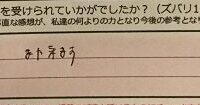 を受けられていかがでしたか?(ズバリ1
直な感想が、私達の何よりの力となり今後の参考となり
また来ます